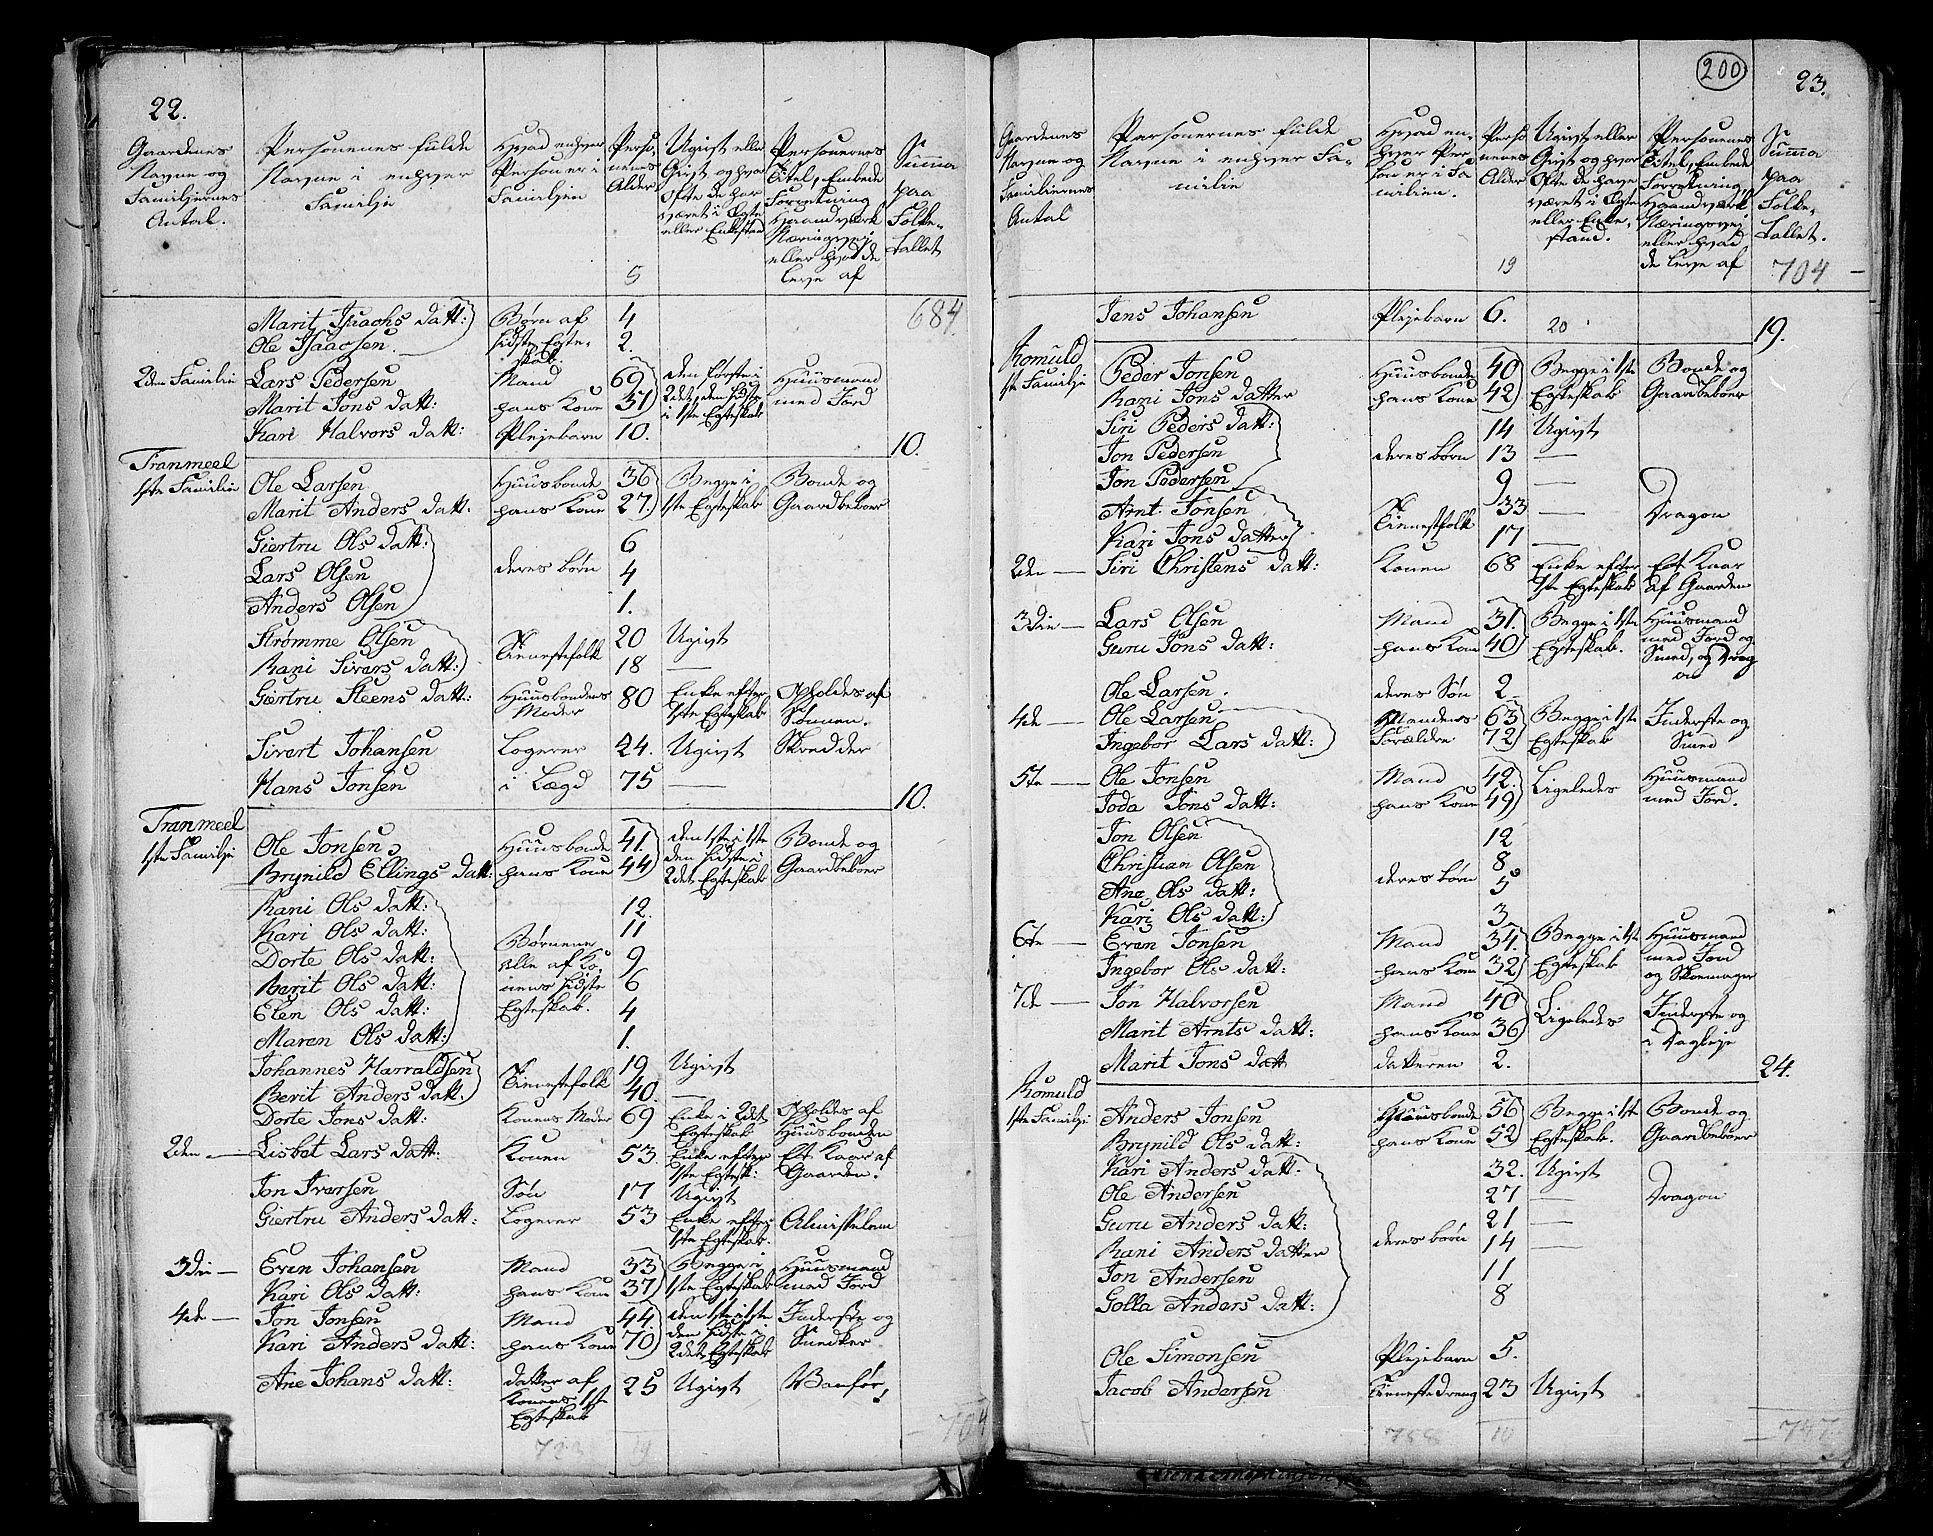 22.
Gaardenes Navne og Familiernes Antal.
Personenes fulde Navne i enhver Familje
Hvad enhver Person er i Familjen
Personenes Alder
Ugivt eller Givt og hvor Ofte de har været i Egte eller Enkestand
Personernes Titel, Embede Forretning Haandværk Næringsvej eller hvad de leve af
Summa paa Folke-tallet
5
684
Marit Isachs Datt: Børn af sidste Egte-skab. 4
Ole Isaacsen. 2.
2den Familie Lars Pedersen Mand 69 den første i 2det, den sidste i 1ste Egteskab Huusmand med Jord
Marit Jons Datt: hans Kone 51
Kari Halvors Datt: Plejebarn 10.
10.
Tranmeel
1ste Familie Ole Larsen Huusbonde 36 Begge i 1ste Egteskab Bonde og Gaardbeboer
Marit Anders Datt. hans Kone 27.
Giertru Ols Datt: 6
Lars Olsen deres børn 4
Anders Olsen 1.
Strømme Olsen Tienestefolk 20 Ugivt
Rani Sivers Datt: 18 —
Giertru Steens Datt: Huusbondens Moder 80 Enke efter 1ste Egteskab Opholdes af Sønnen.
Sivert Johansen Logerer 24. Ugivt Skredder
Hans Jonsen i Lægd 75 —
10.
Tranmeel
1ste Familje Ole Jonsen Huusbonde 41. den 1ste i 1ste den sidste i 2det Egteskab Bonde og Gaardbeboer
Brynild Ellings Datt: hans Kone 44
Rani Ols Datt: 12.
Kari Ols Datt: 11
Dorte Ols Datt: Børnene alle af Ko-nens sidste Egteskab. 9
Berit Ols Datt: 6
Elen Ols Datt: 4
Maren Ols Datt: 1.
Johannes Harraldsen Tienestefolk 19 Ugivt
Berit Anders Datt. 40. —
Dorte Jons Datt: Konens Moder 69 Enke i 2det Egteskab Opholdes af Huusbonden
2den — Lisbet Lars Datt: Konen 53. Enke efter 1ste Egtesk: Et Kaar af Gaarden.
Jon Iversen Søn 17 Ugivt
Giertru Anders Datt: Logerer 53 Enke efter 1ste Egteskab. Almisselem
3die — Even Johansen Mand 33 Begge i 1ste Egteskab Huusmand med Jord
Kari Ols Datt: hans Kone 37
4de — Jon Jonsen Mand 44. den 1ste i 1ste den sidste i 2det Egteskab Inderste og Snedker
Kari Anders Datt: hans Kone 70
Ane Johans Datt: datter af Konens 1ste Egteskab 25 Ugivt Vanfør.
19
704
200
23.
Gaardenes Navne og Familiernes Antal
Personernes fulde Navne i enhver Fa-milie
Hvad en-hver Per-son er i Fa-milien.
Personenes Alder
Ugivt eller Givt og hvor Ofte de have været i Egte eller Enke-stand.
Personenes Titel, Embede Forretning, Haandværk Næringsvej eller hvad de leve af
Summa paa Folke-tallet.
19
704
Jens Johansen Plejebarn 6.
20
19.
Romuld
1ste Familje Peder Jonsen Huusbonde 40 Begge i 1ste Egteskab Bonde og Gaardbeboer
Rani Jons Datter hans Kone 42
Siri Peders Datt: 14 Ugivt
Jon Pedersen deres børn 13 —
Jon Pedersen 9 —
Arnt Jonsen Tienestfolk 33 — Dragon
Kari Jons Datter 17 —
2den — Siri Christens Datt: Konen 68 Enke efter 1ste Egteskab Et Kaar af Gaarden
3die — Lars Olsen Mand 31. Begge i 1ste Egteskab. Huusmand med Jord og Smed, og Drag on
Guru Jons Datt: hans Kone 40
Ole Larsen. deres Søn 2
4de — Ole Larsen Mandens Forældre 63 Begge i 1ste Egteskab Inderste og Smed
Ingebor Lars Datt: 72
5te — Ole Jonsen Mand 42. Ligeledes Huusmand med Jord.
Joda Jons Datt: hans Kone 49
Jon Olsen 12
Christian Olsen deres børn 8
Ane Ols Datt: 5
Kari Ols Datt: 3
6te — Even Jonsen Mand 34. Begge i 1ste Egteskab Huusmand med Jord og Skoemager
Ingebor Ols Datt: hans Kone 32
7de — Jon Halvorsen Mand 40 Ligeledes Inderste og i Dagleje
Marit Arnts Datt: hans Kone 36
Marit Jons Datt datteren 2.
24.
Romuld
1ste Familje Anders Jonsen Huusbonde 56 Begge i 1ste Egteskab. Bonde og Gaardbeboer
Brynild Ols Datt: hans Kone 52
Kari Anders Datt: 32. Ugivt
Ole Andersen 27 — Dragon
Guru Anders Datt: deres børn 21 —
Rani Anders Datter 14 —
Jon Andersen 11
Golla Anders Datt: 8
Ole Simonsen Plejebarn 5.
Jacob Andersen Tienestedreng 23 Ugivt
10
747